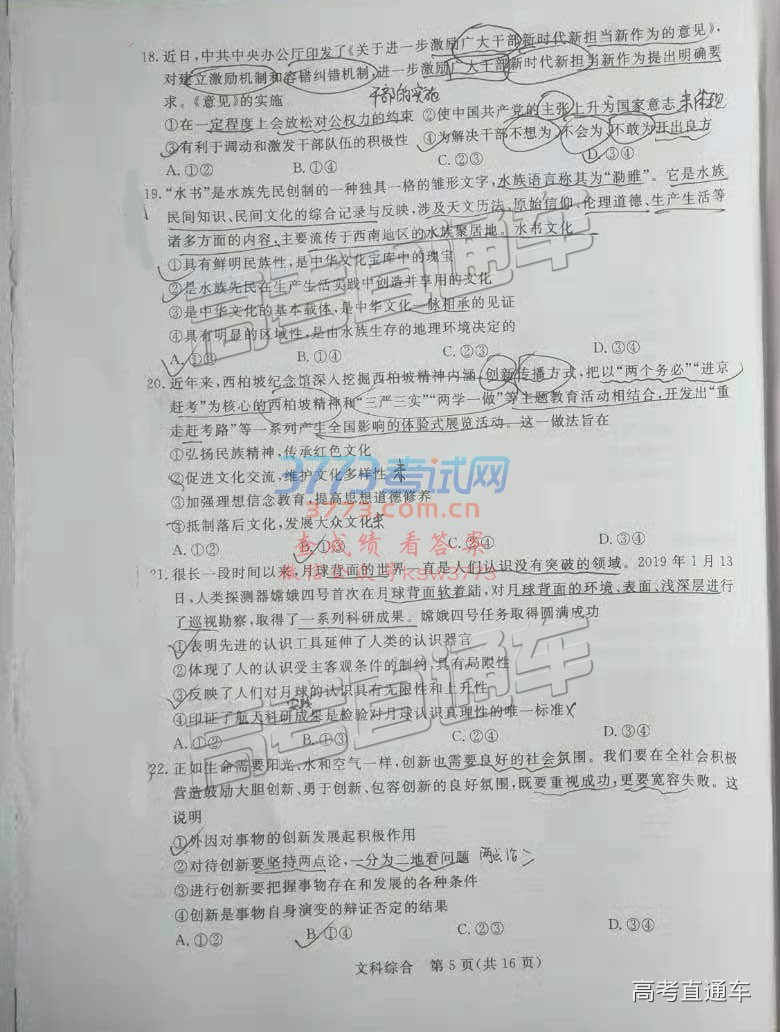 18. 近日,中共中央办公厅印发了《关于进一步激励广大干部新时代新担当新作为的意见》,
对建立激励机制和容错纠错机制,进一步激励广大干部新时代新担当新作为提出明确要
求。《意见》的实施
干部的实施
①在一定程度上会放松对公权力的约束 ②使中国共产党的主张上升为国家意志 未体现
③有利于调动和激发干部队伍的积极性 ④为解决干部不想为、不会为、不敢为开出良方
A. ①② B. ①④ C. ②③ D. ③④
19. “水书”是水族先民创制的一种独具一格的雏形文字,水族语言称其为“泐睢”。它是水族
民间知识、民间文化的综合记录与反映,涉及天文历法、原始信仰、伦理道德、生产生活等
诸多方面的内容,主要流传于西南地区的水族聚居地。水书文化
①具有鲜明民族性,是中华文化宝库中的瑰宝
②是水族先民在生产生活实践中创造并享用的文化
③是中华文化的基本载体,是中华文化一脉相承的见证
④具有明显的区域性,是由水族生存的地理环境决定的
A. ①② B. ①④ C. ②③ D. ③④
20. 近年来,西柏坡纪念馆深入挖掘西柏坡精神内涵,创新传播方式,把以“两个务必”“进京
赶考”为核心的西柏坡精神和“三严三实”“两学一做”等主题教育活动相结合,开发出“重
走赶考路”等一系列产生全国影响的体验式展览活动。这一做法旨在
①弘扬民族精神,传承红色文化
②促进文化交流,维护文化多样性 未
③加强理想信念教育,提高思想道德修养
④抵制落后文化,发展大众文化
A. ①② B. ①③ C. ②④ D. ③④
21. 很长一段时间以来,月球背面的世界一直是人们认识没有突破的领域。2019 年 1 月 13
日,人类探测器嫦娥四号首次在月球背面软着陆,对月球背面的环境、表面、浅深层进行
了巡视勘察,取得了一系列科研成果。嫦娥四号任务取得圆满成功
①表明先进的认识工具延伸了人类的认识器官
②体现了人的认识受主客观条件的制约,具有局限性
③反映了人们对月球的认识具有无限性和上升性
实践
④印证了航天科研成果是检验对月球认识真理性的唯一标准
A. ①② B. ①③ C. ②④ D. ③④
22. 正如生命需要阳光、水和空气一样,创新也需要良好的社会氛围。我们要在全社会积极
营造鼓励大胆创新、勇于创新、包容创新的良好氛围,既要重视成功,更要宽容失败。这
说明
①外因对事物的创新发展起积极作用
②对待创新要坚持两点论,一分为二地看问题
③进行创新要把握事物存在和发展的各种条件
④创新是事物自身演变的辩证否定的结果
A. ①② B. ①④ C. ②③ D. ③④
文科综合 第 5 页(共 16 页)
高考直通车
高考直通车
3773考试网
3773.com.cn
查成绩 看答案
微信公众号:KSW3773
高考直通车